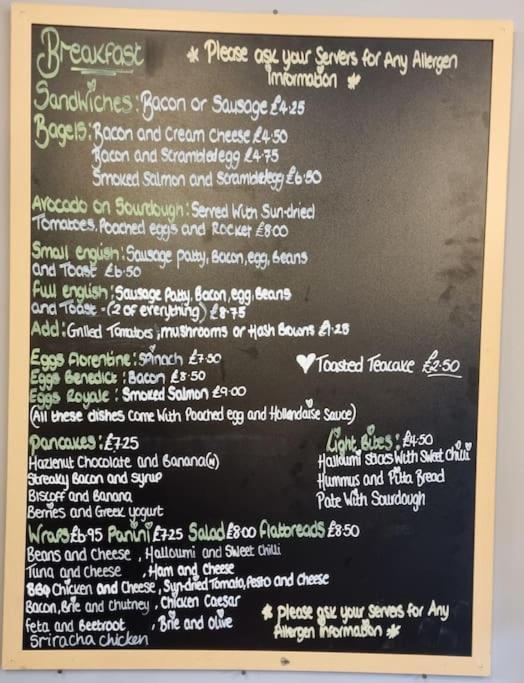 Breakfast
* Please ask your Servers for Any Allergen
Information *
Sandwiches: Bacon or Sausage £4.25
Bagels: Bacon and Cream Cheese £4.50
Bacon and Scrambled egg £4.75
Smoked Salmon and Scrambled egg £6.50
Avocado on Sourdough: Served With Sun-dried
Tomatoes, Poached eggs and Rocket £8.00
Small english: Sausage patty, Bacon, egg, Beans
and Toast £6.50
Full english: Sausage Patty, Bacon, egg, Beans
and Toast - (2 of everything) £8.75
Add: Grilled Tomatoes, mushrooms or Hash Bowns £1.25
Eggs Florentine: Spinach £7.50
♥ Toasted Teacake £2.50
Eggs Benedict: Bacon £8.50
Eggs Royale: Smoked Salmon £9.00
(All these dishes come With Poached egg and Hollandaise Sauce)
Pancakes: £7.25
Hazlenut Chocolate and Banana (N)
Streaky Bacon and Syrup
Biscoff and Banana
Berries and Greek yogurt
Light Bites: £4.50
Halloumi Sticks With Sweet Chilli
Hummus and Pitta Bread
Pate With Sourdough
Wraps £6.95 Panini £7.25 Salad £8.00 Flatbreads £8.50
Beans and Cheese, Halloumi and Sweet Chilli
Tuna and Cheese, Ham and Cheese
BBQ Chicken and Cheese, Sun-dried Tomato, Pesto and Cheese
Bacon, Brie and Chutney, Chicken Caesar
Feta and Beetroot, Brie and olive
Sriracha Chicken
* Please ask your Servers for Any
Allergen Information *